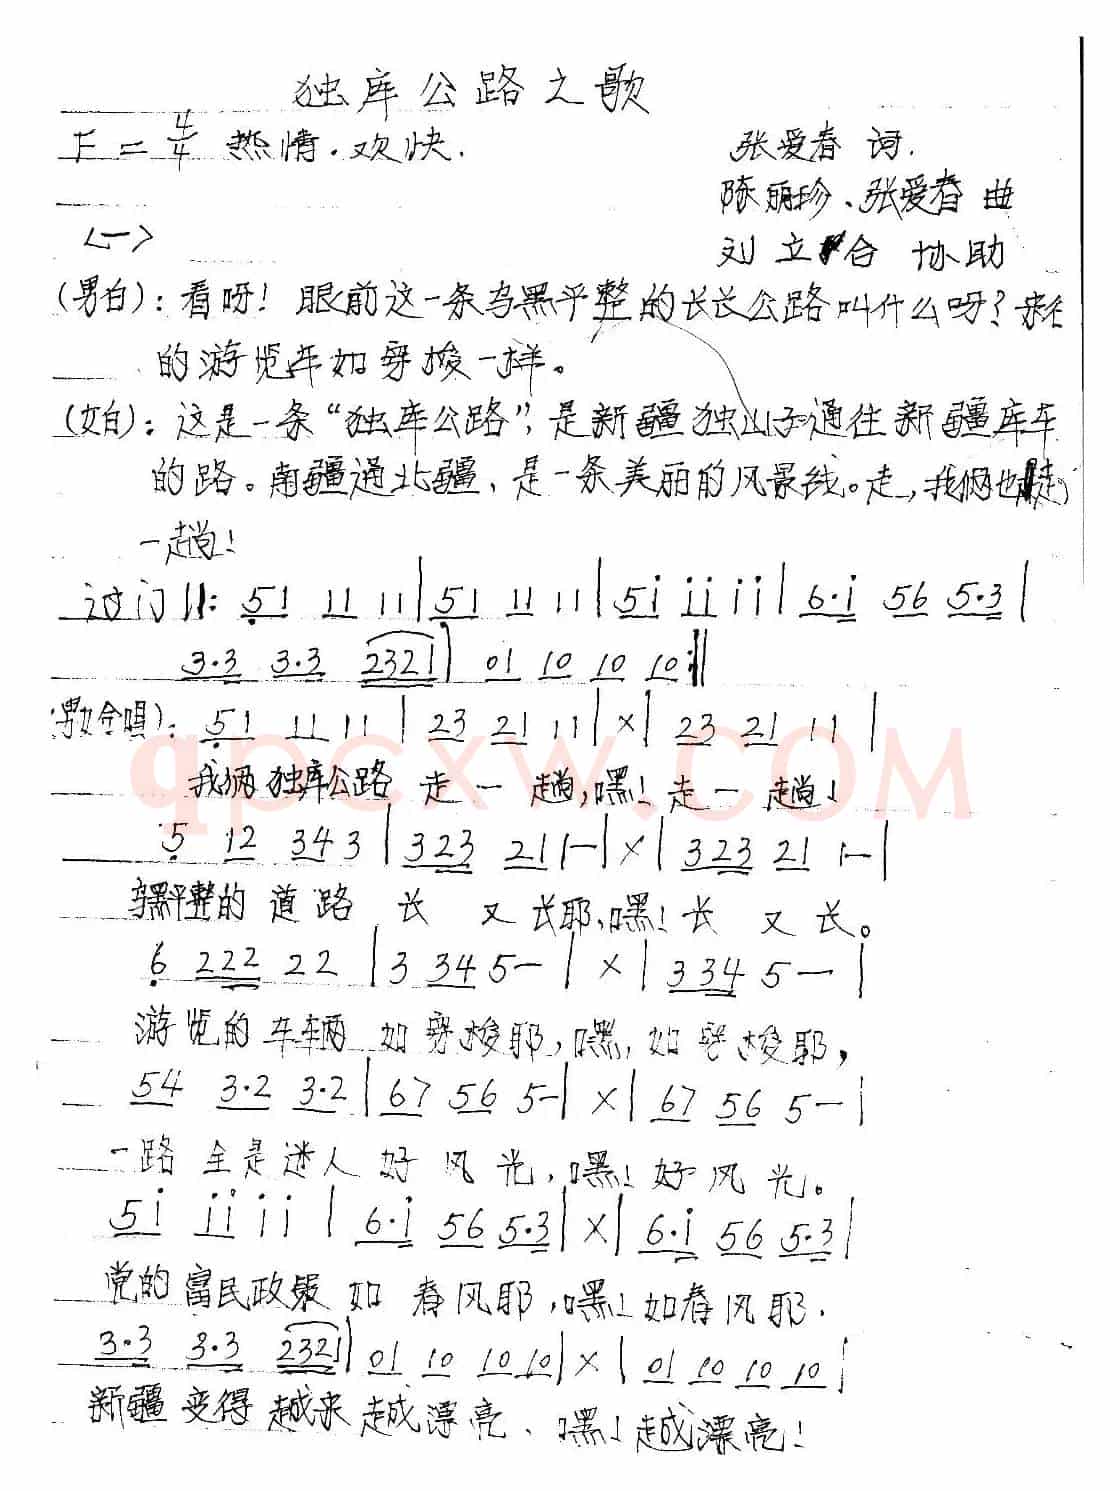 独库公路之歌
F = 4/4 热情.欢快.
张爱春 词.
陈丽珍、张爱春 曲
<一>
刘立合 协助
(男白): 看呀! 眼前这一条乌黑平整的长长公路叫什么呀? 来往
的游览车如穿梭一样。
(女白): 这是一条“独库公路”, 是新疆独山子通往新疆库车
的路。南疆通北疆, 是一条美丽的风景线。走, 我俩也走
一趟!
过门 ‖: 5̣1 11 11 | 5̣1 11 11 | 5i ii ii | 6·i 56 5·3 |
3·3 3·3 2321 | 01 10 10 10 :‖
(男女合唱): 5̣1 11 11 | 23 21 11 | × | 23 21 11 |
我俩独库公路 走一趟, 嘿! 走一趟!
5̣ 12 34 3 | 323 21 1— | × | 323 21 1— |
乌黑平整的道路 长又长耶, 嘿! 长又长。
6̣ 222 22 | 3 34 5— | × | 334 5— |
游览的车辆 如穿梭耶, 嘿, 如穿梭耶,
54 3·2 3·2 | 67 56 5— | × | 67 56 5— |
一路全是迷人好风光, 嘿! 好风光。
5i ii ii | 6·i 56 5·3 | × | 6·i 56 5·3 |
党的富民政策 如春风耶, 嘿! 如春风耶.
3·3 3·3 2321 | 01 10 10 10 | × | 01 10 10 10 |
新疆变得越来越漂亮、嘿! 越漂亮!
qpcxw.COM